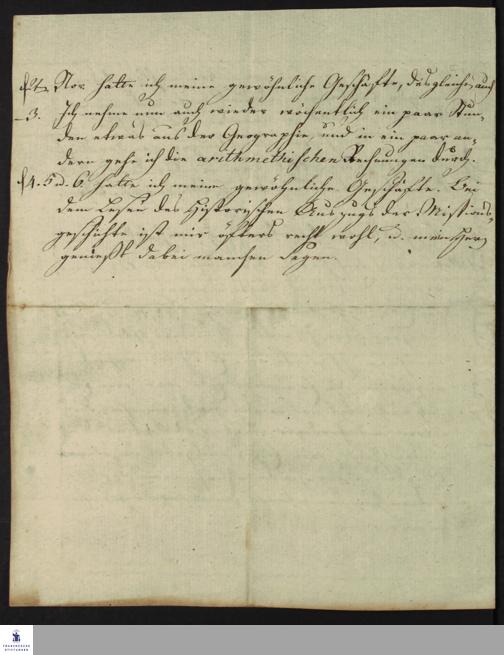 d 2t. Nov. hatte ich meine gewöhnliche Geschäfte, desgleichen auch
3. Ich nehme nun auch wieder wöchentlich ein paar Stun-
den etwas aus der Geographie, und in ein paar an-
dern gehe ich die arithmethischen Rechnungen durch.
d 4. 5. u. 6. hatte ich meine gewöhnliche Geschäfte. Bei
dem Lesen des Historischen Auszugs der Missions-
geschichte ist mir öfters recht wohl, u. mein Herz
genießt dabei manchen Segen.
FRANCKESCHE
STIFTUNGEN